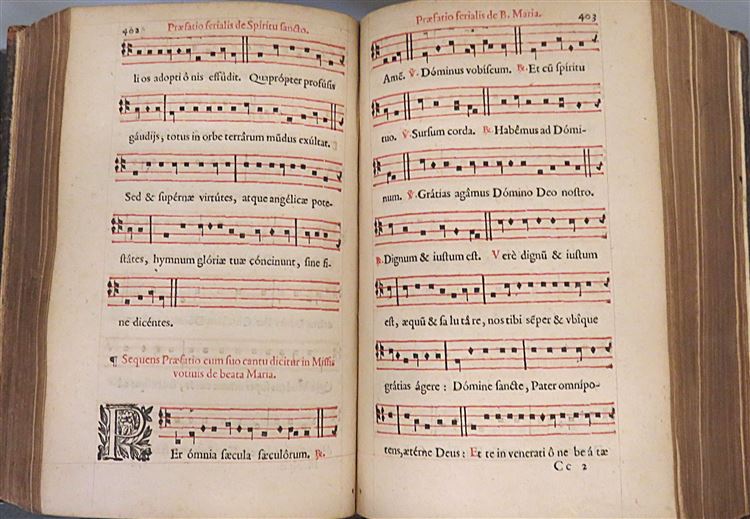 402
Præfatio ferialis de Spiritu sancto.
li os adopti ô nis effúdit. Quaprópter profúsis
gáudijs, totus in orbe terrárum mũdus exúltat.
Sed & supérnæ virtútes, atque angélicæ pote-
státes, hymnum glóriæ tuæ cóncinunt, sine fi-
ne dicéntes.
¶ Sequens Præfatio cum suo cantu dicitur in Missis
votiuis de beata Maria.
PEr ómnia sæcula sæculôrum. ℟.
Præfatio ferialis de B. Maria.
403
Amẽ. ℣. Dóminus vobíscum. ℟. Et cũ spíritu
tuo. ℣. Sursum corda. ℟. Habêmus ad Dómi-
num. ℣. Grátias agâmus Dómino Deo nostro.
℟. Dignum & iustum est. Verè dignũ & iustum
est, æquũ & sa lu tâ re, nos tibi sẽper & vbîque
grátias ágere: Dómine sancte, Pater omnípo-
tens, ætérne Deus: Et te in venerati ô ne be á tæ
Cc 2